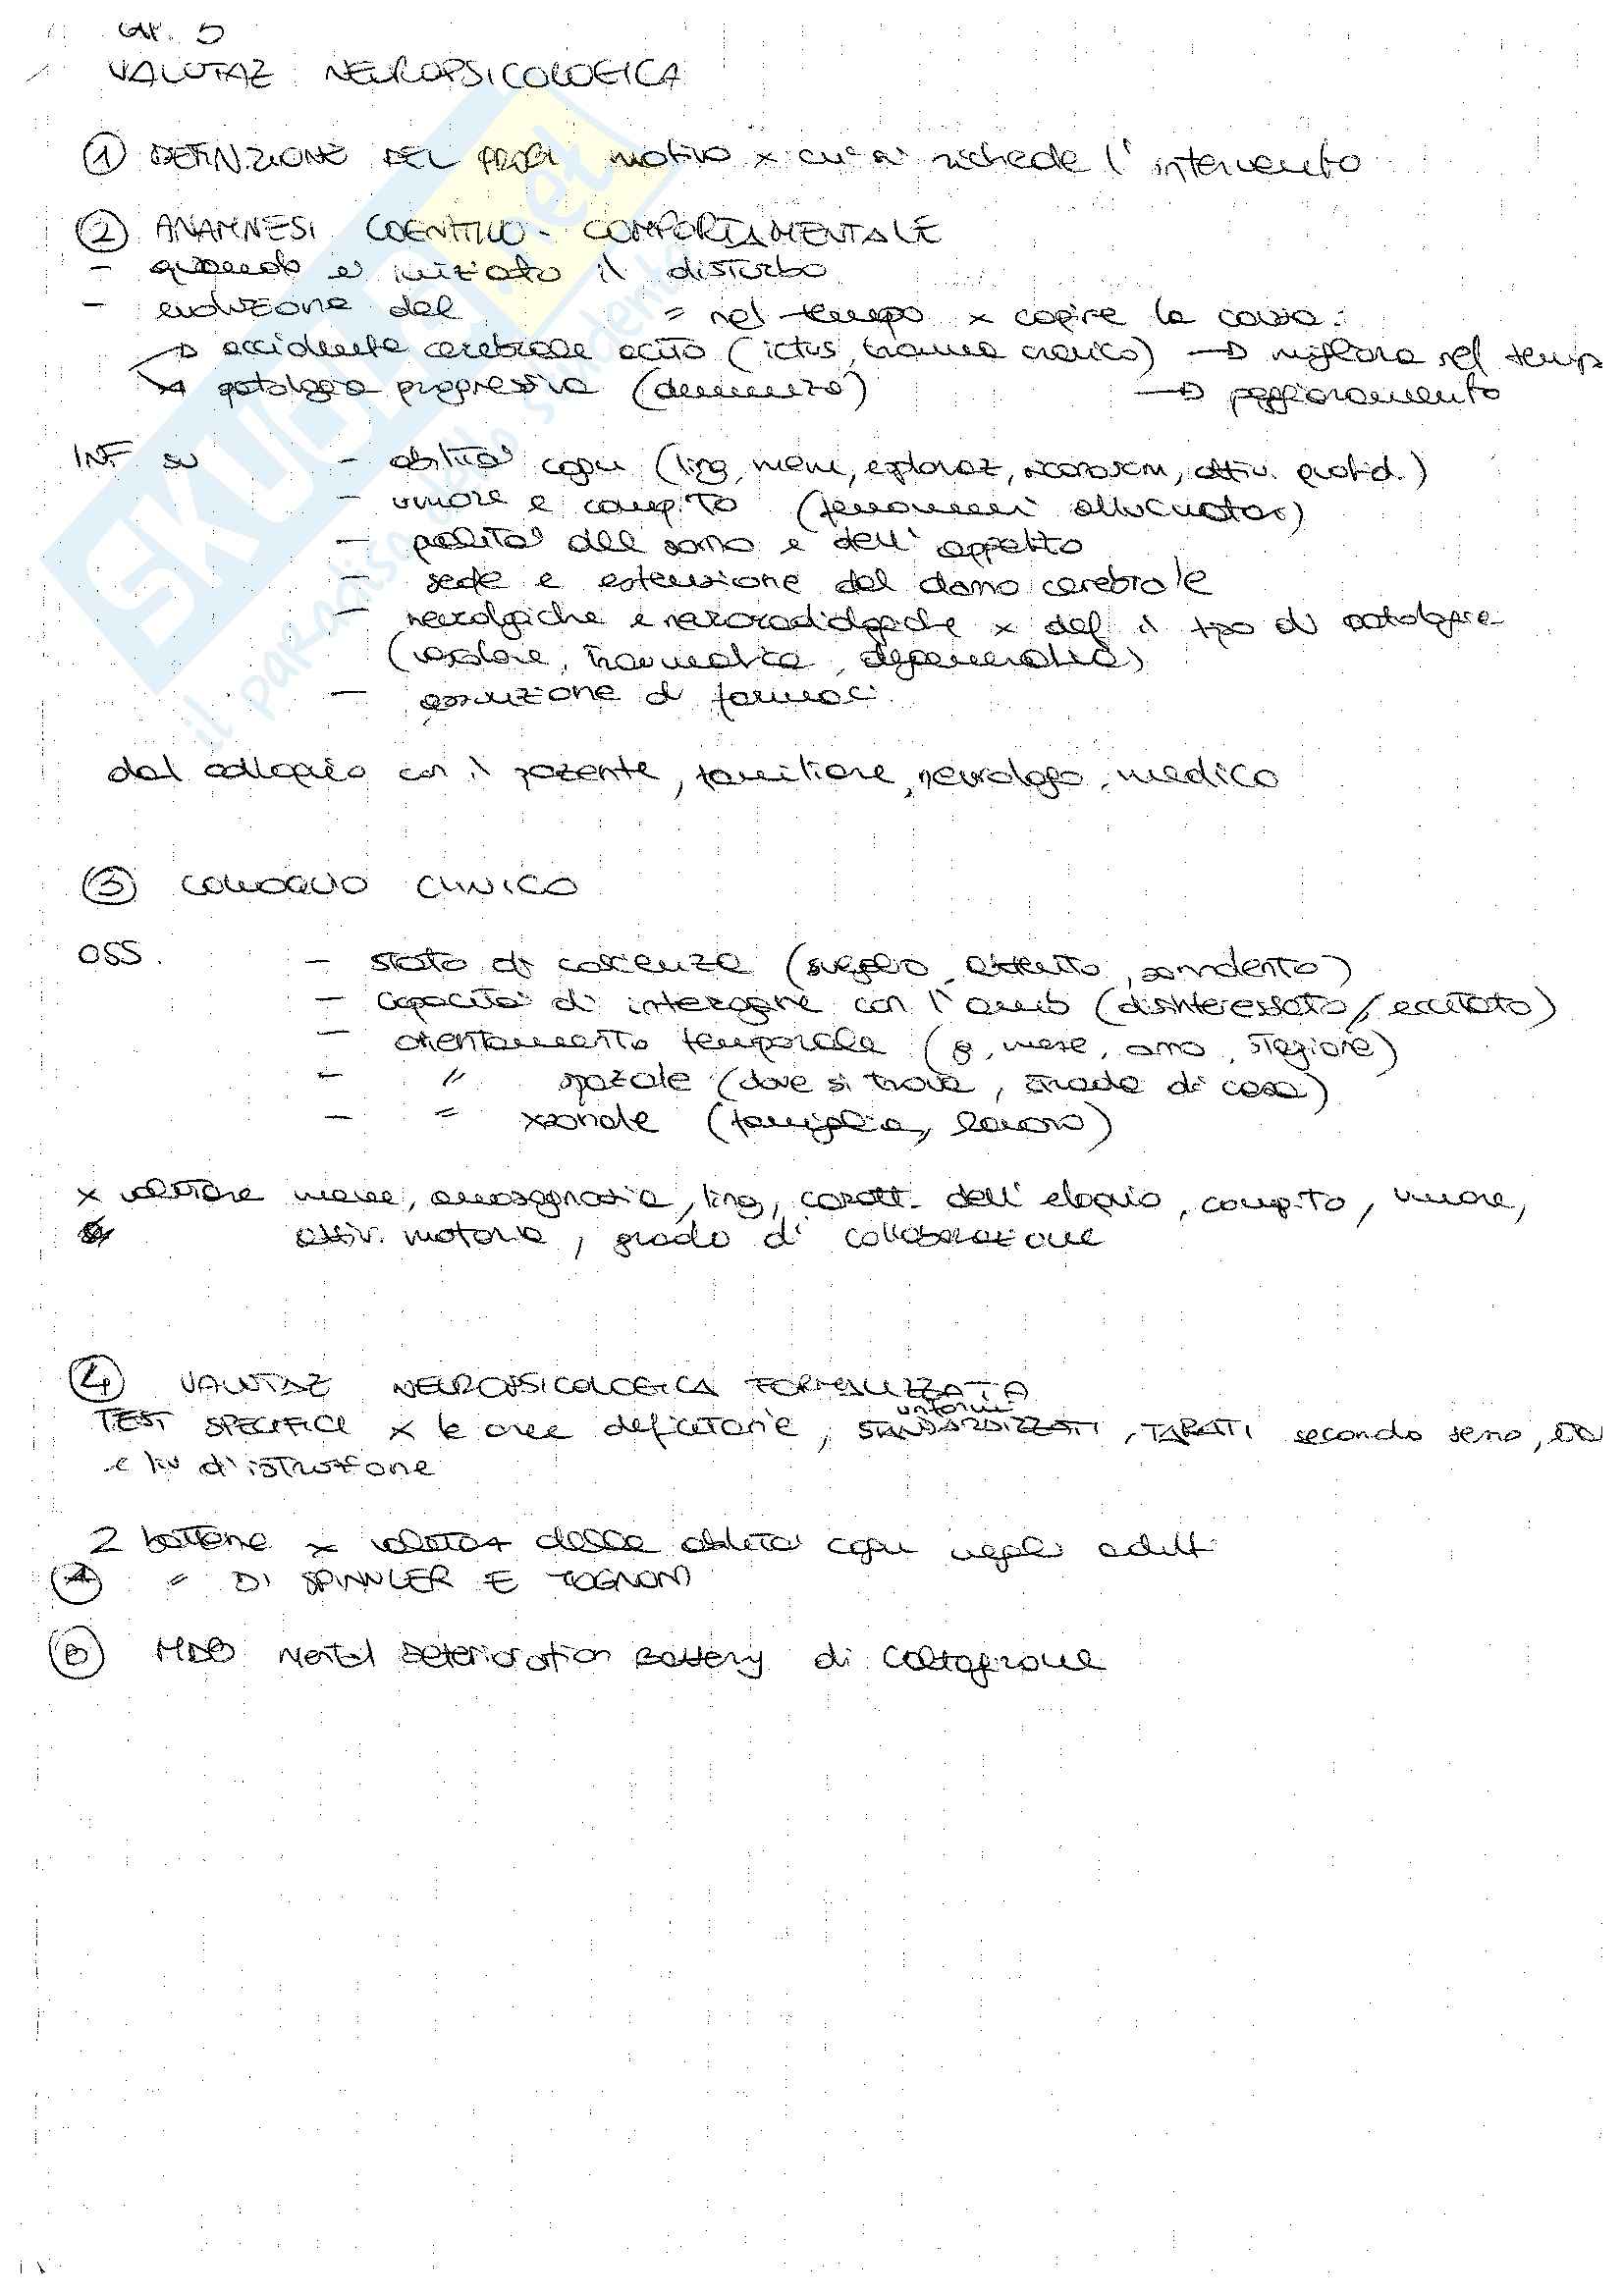 CAP. 5
VALUTAZ NEUROPSICOLOGICA
① DEFINIZIONE DEL PROBL motivo x cui si richiede l'intervento
② ANAMNESI COGNITIVO - COMPORTAMENTALE
- quando e' iniziato il disturbo
- evoluzione del = nel tempo x capire la causa:
→ accidente cerebrale acuto (ictus, trauma cranico) → migliora nel temp
→ patologia progressiva (demenza) → peggioramento
INF su - abilita' cogn (ling, mem, esploraz, riconoscim, attiv. quotid.)
- umore e compto (fenomeni allucinatori)
- qualita' del sonno e dell'appetito
- sede e estensione del danno cerebrale
- neurologiche e neuroradiologiche x def il tipo di patologia
(vascolare, traumatica, degenerativa)
- assunzione di farmaci
dal colloquio con il paziente, familiare, neurologo, medico
③ COLLOQUIO CLINICO
OSS. - stato di coscienza (sveglio, attento, sonnolento)
- capacita' di interagire con l'amb (disinteressato/eccitato)
- orientamento temporale (g, mese, anno, stagione)
- " spaziale (dove si trova, strada di casa)
- = xsonale (famiglia, lavoro)
x valutare mem, anosognosia, ling, caratt. dell'eloquio, compto, umore,
attiv. motoria, grado di collaborazione
④ VALUTAZ NEUROPSICOLOGICA FORMALIZZATA
uniformi
TEST SPECIFICI x le aree deficitarie, STANDARDIZZATI, TARATI secondo sesso,
e liv d'istruzione
2 batterie x valutaz delle abilita' cogn negli adulti
Ⓐ = DI SPINNLER E TOGNONI
Ⓑ MDB Mental Deterioration Battery di Caltagirone
SKUOLA.net
il paradiso dello studente